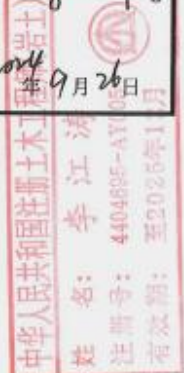 年9月26日
中华人民共和国注册土木工程师(岩土)
姓 名: 李江涛
注册号: 4404895-AY00
有效期: 至2025年1 月